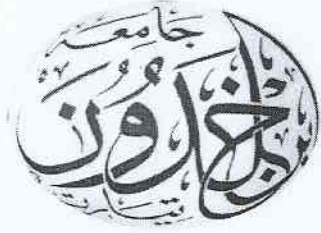 جَامعة
ابن خَلدُونَ
تيارت